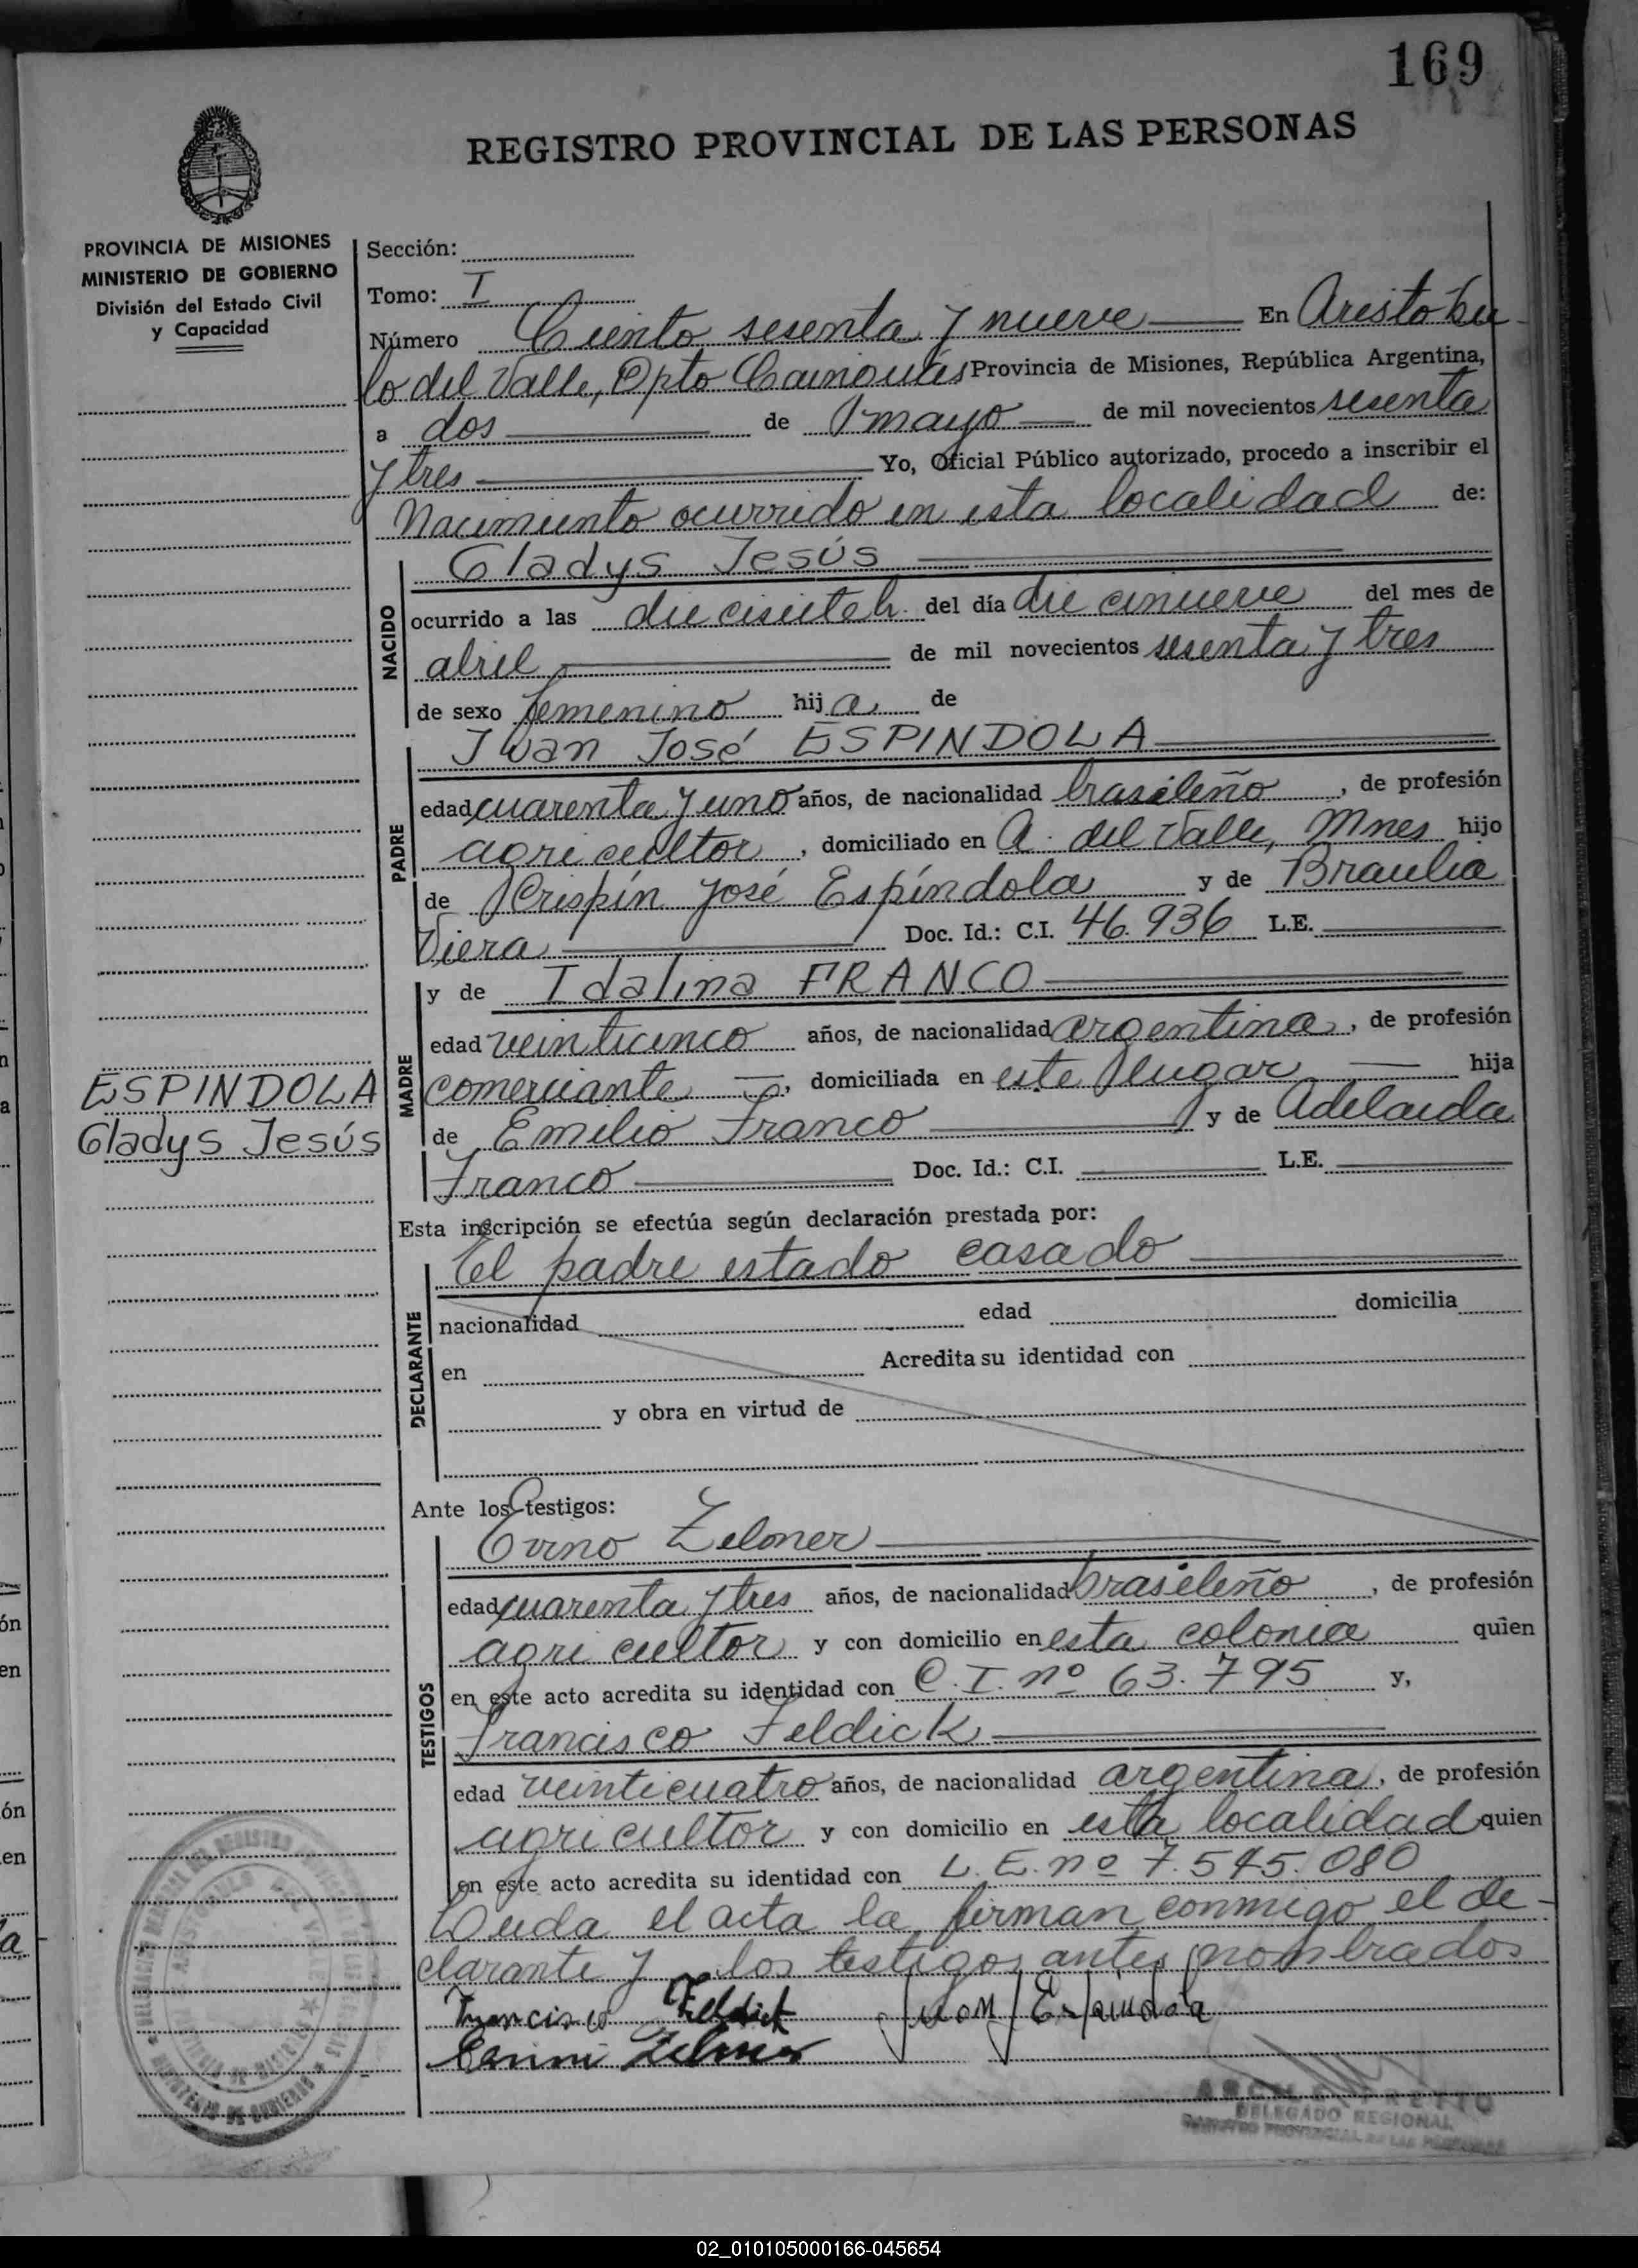 169
REGISTRO PROVINCIAL DE LAS PERSONAS
PROVINCIA DE MISIONES
MINISTERIO DE GOBIERNO
División del Estado Civil
y Capacidad
Sección:
Tomo: I
Número Ciento sesenta y nueve En Aristóbu-
lo del Valle, Dpto Cainguás Provincia de Misiones, República Argentina,
a dos de mayo de mil novecientos sesenta
y tres Yo, Oficial Público autorizado, procedo a inscribir el
Nacimiento ocurrido en esta localidad de:
NACIDO
Gladys Jesús
ocurrido a las diecisiete h. del día diecinueve del mes de
abril de mil novecientos sesenta y tres
de sexo femenino hija de
PADRE
Juan José ESPINDOLA
edad cuarenta y uno años, de nacionalidad brasileño, de profesión
agricultor, domiciliado en A. del Valle, Mnes hijo
de Crispín José Espíndola y de Braulia
Viera Doc. Id.: C.I. 46.936 L.E.
MADRE
y de Idalina FRANCO
edad veinticinco años, de nacionalidad argentina, de profesión
comerciante, domiciliada en este lugar hija
de Emilio Franco y de Adelaida
Franco Doc. Id.: C.I. L.E.
ESPINDOLA
Gladys Jesús
Esta inscripción se efectúa según declaración prestada por:
DECLARANTE
El padre estado casado
nacionalidad edad domicilia
en Acredita su identidad con
y obra en virtud de
Ante los testigos:
TESTIGOS
Ervino Zelmer
edad cuarenta y tres años, de nacionalidad brasileño, de profesión
agricultor y con domicilio en esta colonia quien
en este acto acredita su identidad con C.I. nº 63.795 y,
Francisco Feldick
edad veinticuatro años, de nacionalidad argentina, de profesión
agricultor y con domicilio en esta localidad quien
en este acto acredita su identidad con L.E. nº 7.545.080
Leida el acta la firman conmigo el de-
clarante y los testigos antes nombrados
Francisco Feldick Juan J Espindola
Zelmer
DELEGADO REGIONAL
REGISTRO PROVINCIAL DE LAS PERSONAS
02_010105000166-045654